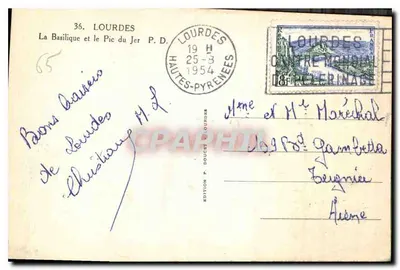 36. LOURDES
La Basilique et le Pic du Jer P. D.
65
LOURDES
19 H
25-8
1954
HAUTES-PYRENEES
LOURDES
CENTRE MONDIAL
DE PELERINAGE
Bons baisers
de Lourdes
Christiane M. L.
Mme et Mr Maréchal
Bd Gambetta
Tergnier
Aisne
EDITION P. DOUCET LOURDES
CPAPHIL